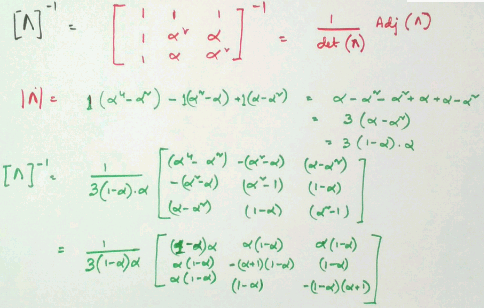 [Λ]⁻¹ = [ 1 1 1 ; 1 α² α ; 1 α α² ]⁻¹ = 1/det(Λ) Adj(Λ)
|Λ| = 1(α⁴-α²) - 1(α²-α) + 1(α-α²) = α-α²-α²+α+α-α²
= 3(α-α²)
= 3(1-α).α
[Λ]⁻¹ = 1/3(1-α).α [ (α⁴-α²) -(α²-α) (α-α²) ; -(α²-α) (α²-1) (1-α) ; (α-α²) (1-α) (α²-1) ]
= 1/3(1-α)α [ (1-α)α α(1-α) α(1-α) ; α(1-α) -(α+1)(1-α) (1-α) ; α(1-α) (1-α) -(1-α)(α+1) ]